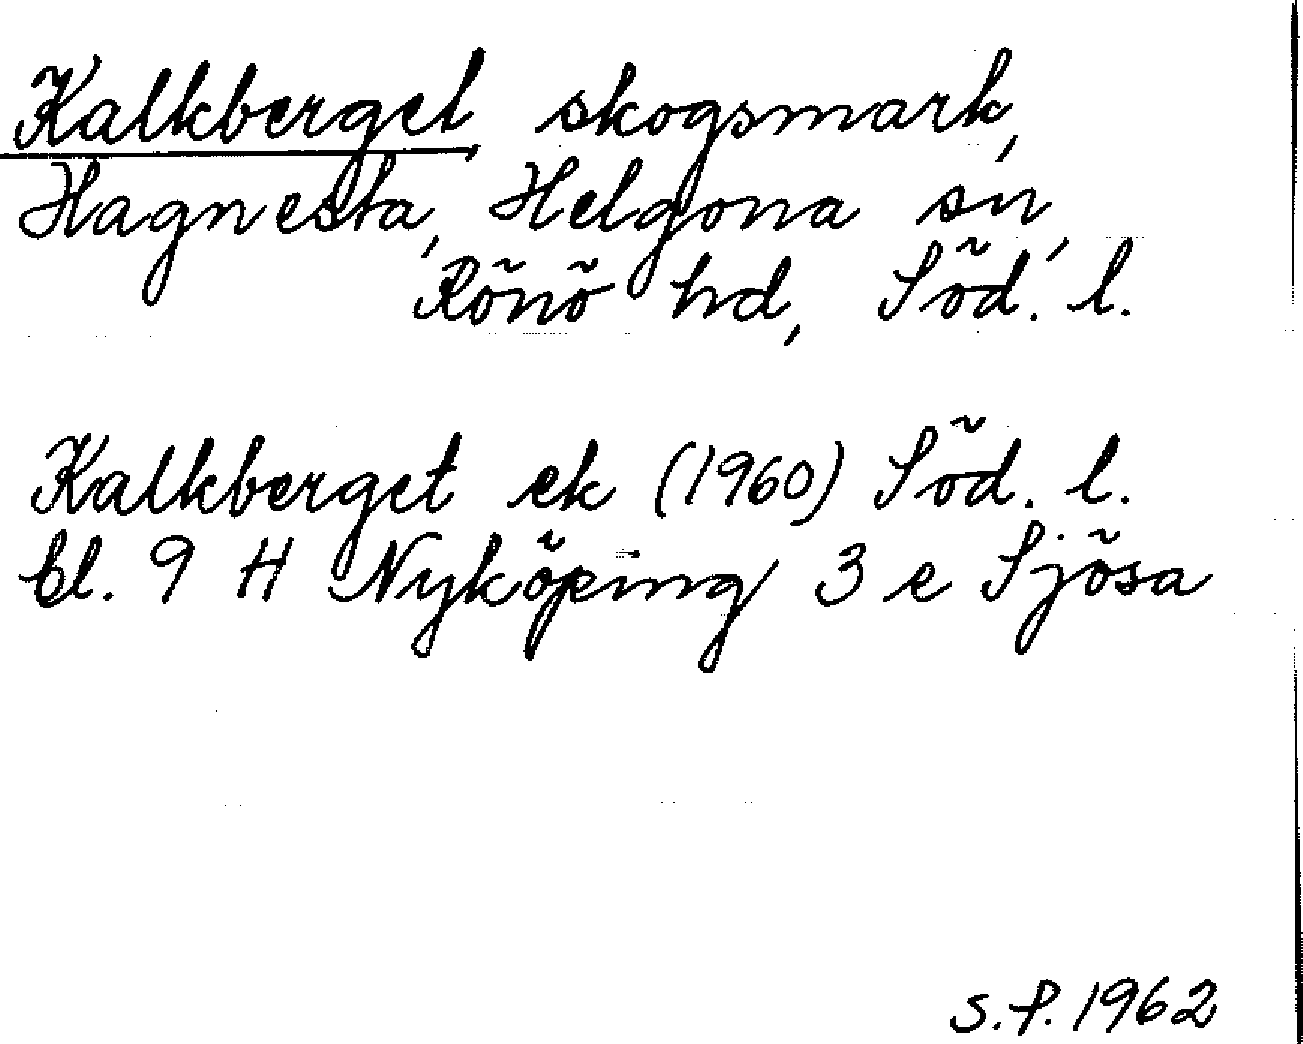 Kalkberget, skogsmark,
Hagnesta, Helgona sn,
Rönö hd, Söd. l.
Kalkberget ek (1960) Söd. l.
bl. 9 H Nyköping 3 e Sjösa
S.P. 1962